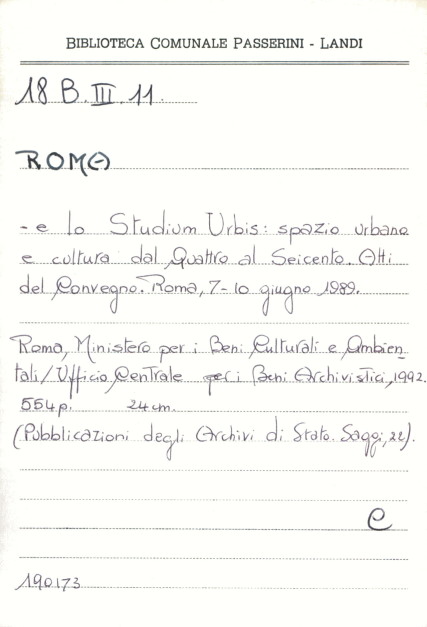 BIBLIOTECA COMUNALE PASSERINI - LANDI
18 B. III. 11.
ROMA
- e lo Studium Urbis: spazio urbano
e cultura dal Quattro al Seicento. Atti
del Convegno. Roma, 7-10 giugno 1989.
Roma, Ministero per i Beni Culturali e Ambien_
tali/Ufficio Centrale per i Beni Archivistici, 1992.
554 p. 24 cm.
(Pubblicazioni degli Archivi di Stato. Saggi, 22).
C
190173